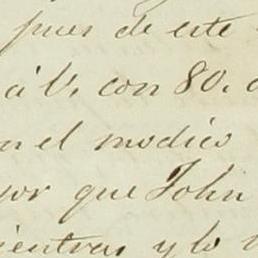 pues de este
á V. con 80.
n el modico
or que John
ientras y lo